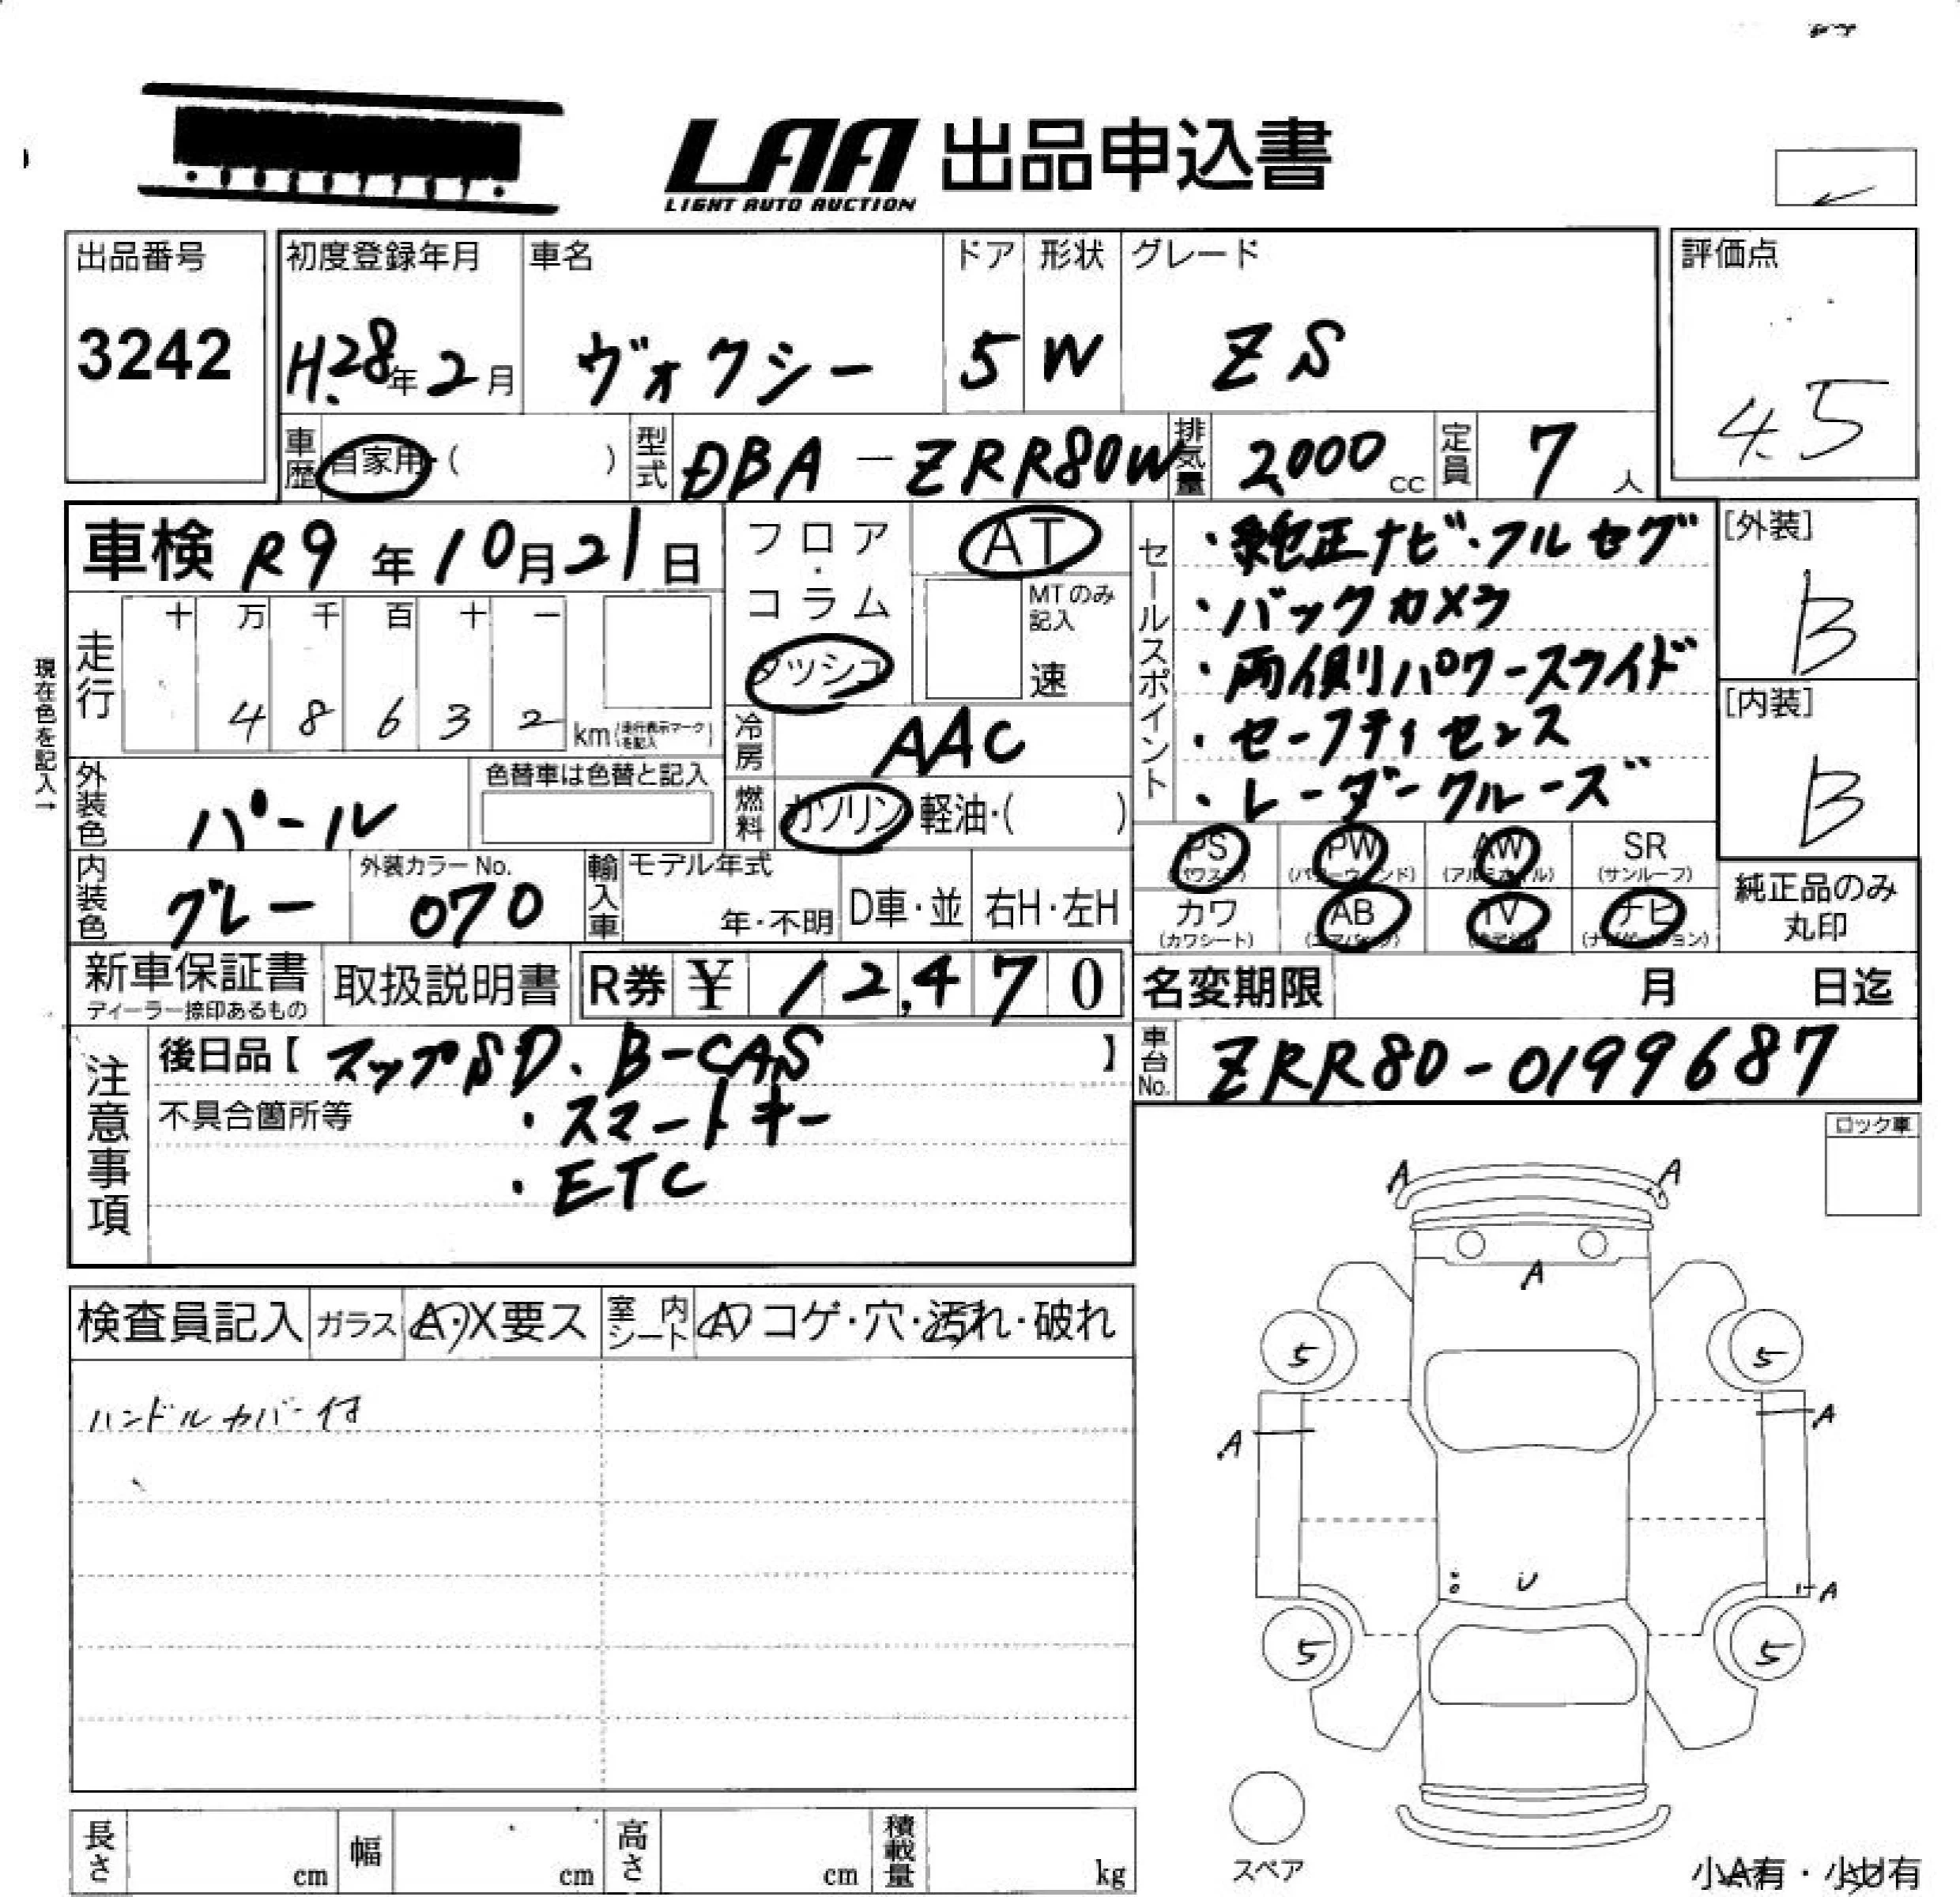 LAA 出品申込書
LIGHT AUTO AUCTION
出品番号
3242
初度登録年月
H.28年2月
車名
ヴォクシー
ドア
5
形状
W
グレード
ZS
評価点
4.5
車歴
自家用・( )
型式
DBA-ZRR80W
排気量
2,000cc
定員
7人
車検 R9年10月21日
フロア・コラム
ダッシュ
AT
MTのみ記入
速
セールスポイント
・純正ナビ・フルセグ
・バックカメラ
・両側パワースライド
・セーフティセンス
・レーダークルーズ
[外装]
B
[内装]
B
現在色を記入→
走行
十 万 千 百 十 一
4 8 6 3 2 km(走行表示マークを記入)
冷房
AAC
外装色
パール
色替車は色替と記入
燃料
ガソリン 軽油・( )
PS
(パワステ)
PW
(パワーウィンド)
AW
(アルミホイル)
SR
(サンルーフ)
カワ
(カワシート)
AB
(エアバック)
TV
ナビ
(ナビゲーション)
純正品のみ
丸印
内装色
グレー
外装カラーNo.
070
輸入車
モデル年式
年・不明
D車・並
右H・左H
新車保証書
ディーラー捺印あるもの
取扱説明書
R券 ¥ 12,470
名変期限 月 日迄
注意事項
後日品【マップSD. B-CAS】
不具合箇所等
・スマートキー
・ETC
車台No.
ZRR80-0199687
ロック車
検査員記入
ガラス
A・X要ス
室内シート
A コゲ・穴・汚れ・破れ
ハンドルカバー付
A A
A
5 5
A A
U
A
5 5
スペア
長さ cm
幅 cm
高さ cm
積載量 kg
小A有・小U有